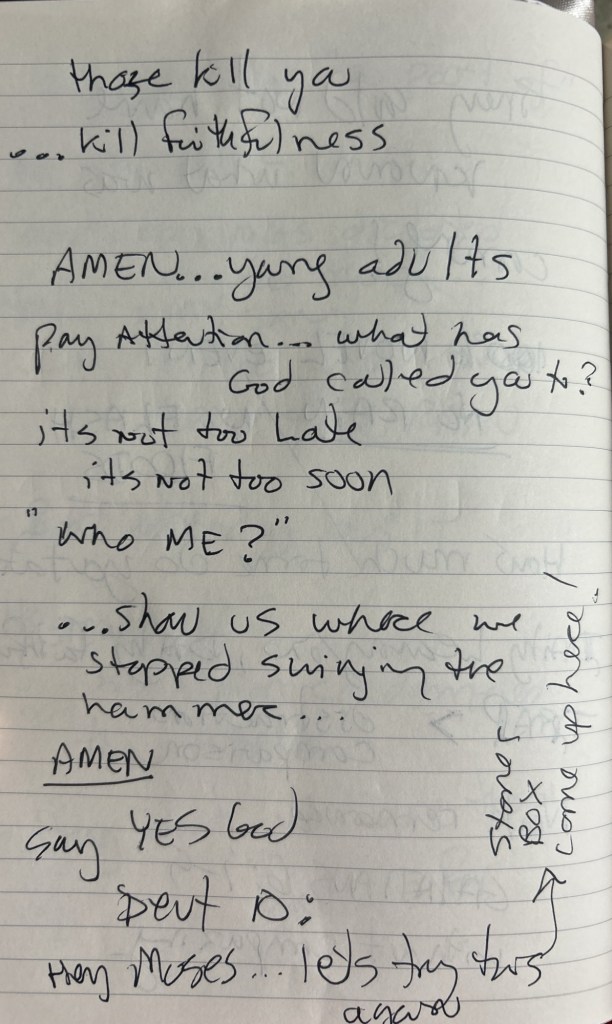 those kill ya
... kill faithfulness
AMEN... young adults
Pay Attention... what has
God called ya to?
its not too Late
its not too soon
"Who ME?"
...show us where we
stopped swinging the
hammer...
AMEN
say YES God
Deut 10:
Hey Moses... let's try this
again
Stones
Box
come up here!